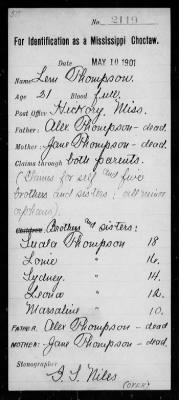 No. 2119
For Identification as a Mississippi Choctaw.
Date MAY 10 1901
Name Lem Thompson.
Age 21 Blood full.
Post Office Hickory, Miss.
Father: Alex Thompson - dead.
Mother: Jane Thompson - dead.
Claims through both parents.
(Claims for self and five
brothers and sisters; all minor
orphans).
Children: Brothers and sisters:
Lucla Thompson 18
Lonie " 16.
Sydney " 14.
Leona " 12.
Marsaline " 10.
FATHER: Alex Thompson - dead
MOTHER: Jane Thompson - dead.
Stenographer
G. S. Niles
(OVER)